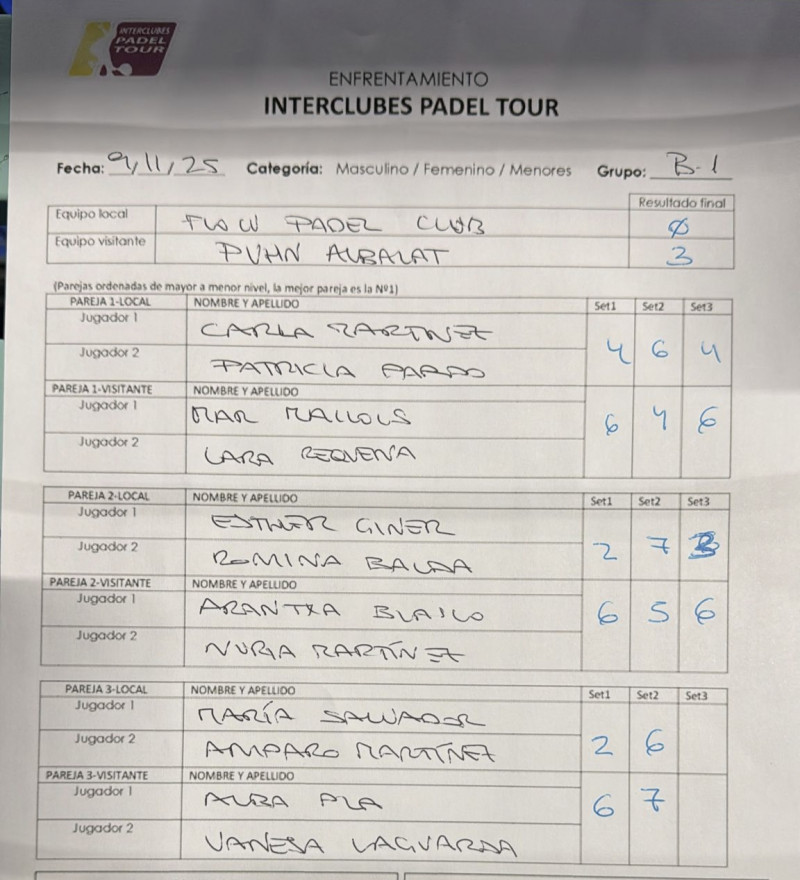 INTERCLUBES
PADEL
TOUR
ENFRENTAMIENTO
INTERCLUBES PADEL TOUR
Fecha: 9/11/25 Categoría: Masculino / Femenino / Menores Grupo: B-1
Resultado final
Equipo local FLOW PADEL CLUB 0
Equipo visitante PVHN ALBALAT 3
(Parejas ordenadas de mayor a menor nivel, la mejor pareja es la Nº1)
PAREJA 1-LOCAL NOMBRE Y APELLIDO Set1 Set2 Set3
Jugador 1 CARLA MARTINEZ
4 6 4
Jugador 2 PATRICIA PARDO
PAREJA 1-VISITANTE NOMBRE Y APELLIDO
Jugador 1 MAR MALLOLS
6 4 6
Jugador 2 LARA REQUENA
PAREJA 2-LOCAL NOMBRE Y APELLIDO Set1 Set2 Set3
Jugador 1 ESTHER GINER
2 7 3
Jugador 2 ROMINA BALDA
PAREJA 2-VISITANTE NOMBRE Y APELLIDO
Jugador 1 ARANTXA BLASCO
6 5 6
Jugador 2 NURIA MARTÍNEZ
PAREJA 3-LOCAL NOMBRE Y APELLIDO Set1 Set2 Set3
Jugador 1 MARÍA SALVADOR
2 6
Jugador 2 AMPARO MARTÍNEZ
PAREJA 3-VISITANTE NOMBRE Y APELLIDO
Jugador 1 ALBA PLA
6 7
Jugador 2 VANESA LAGUARDA